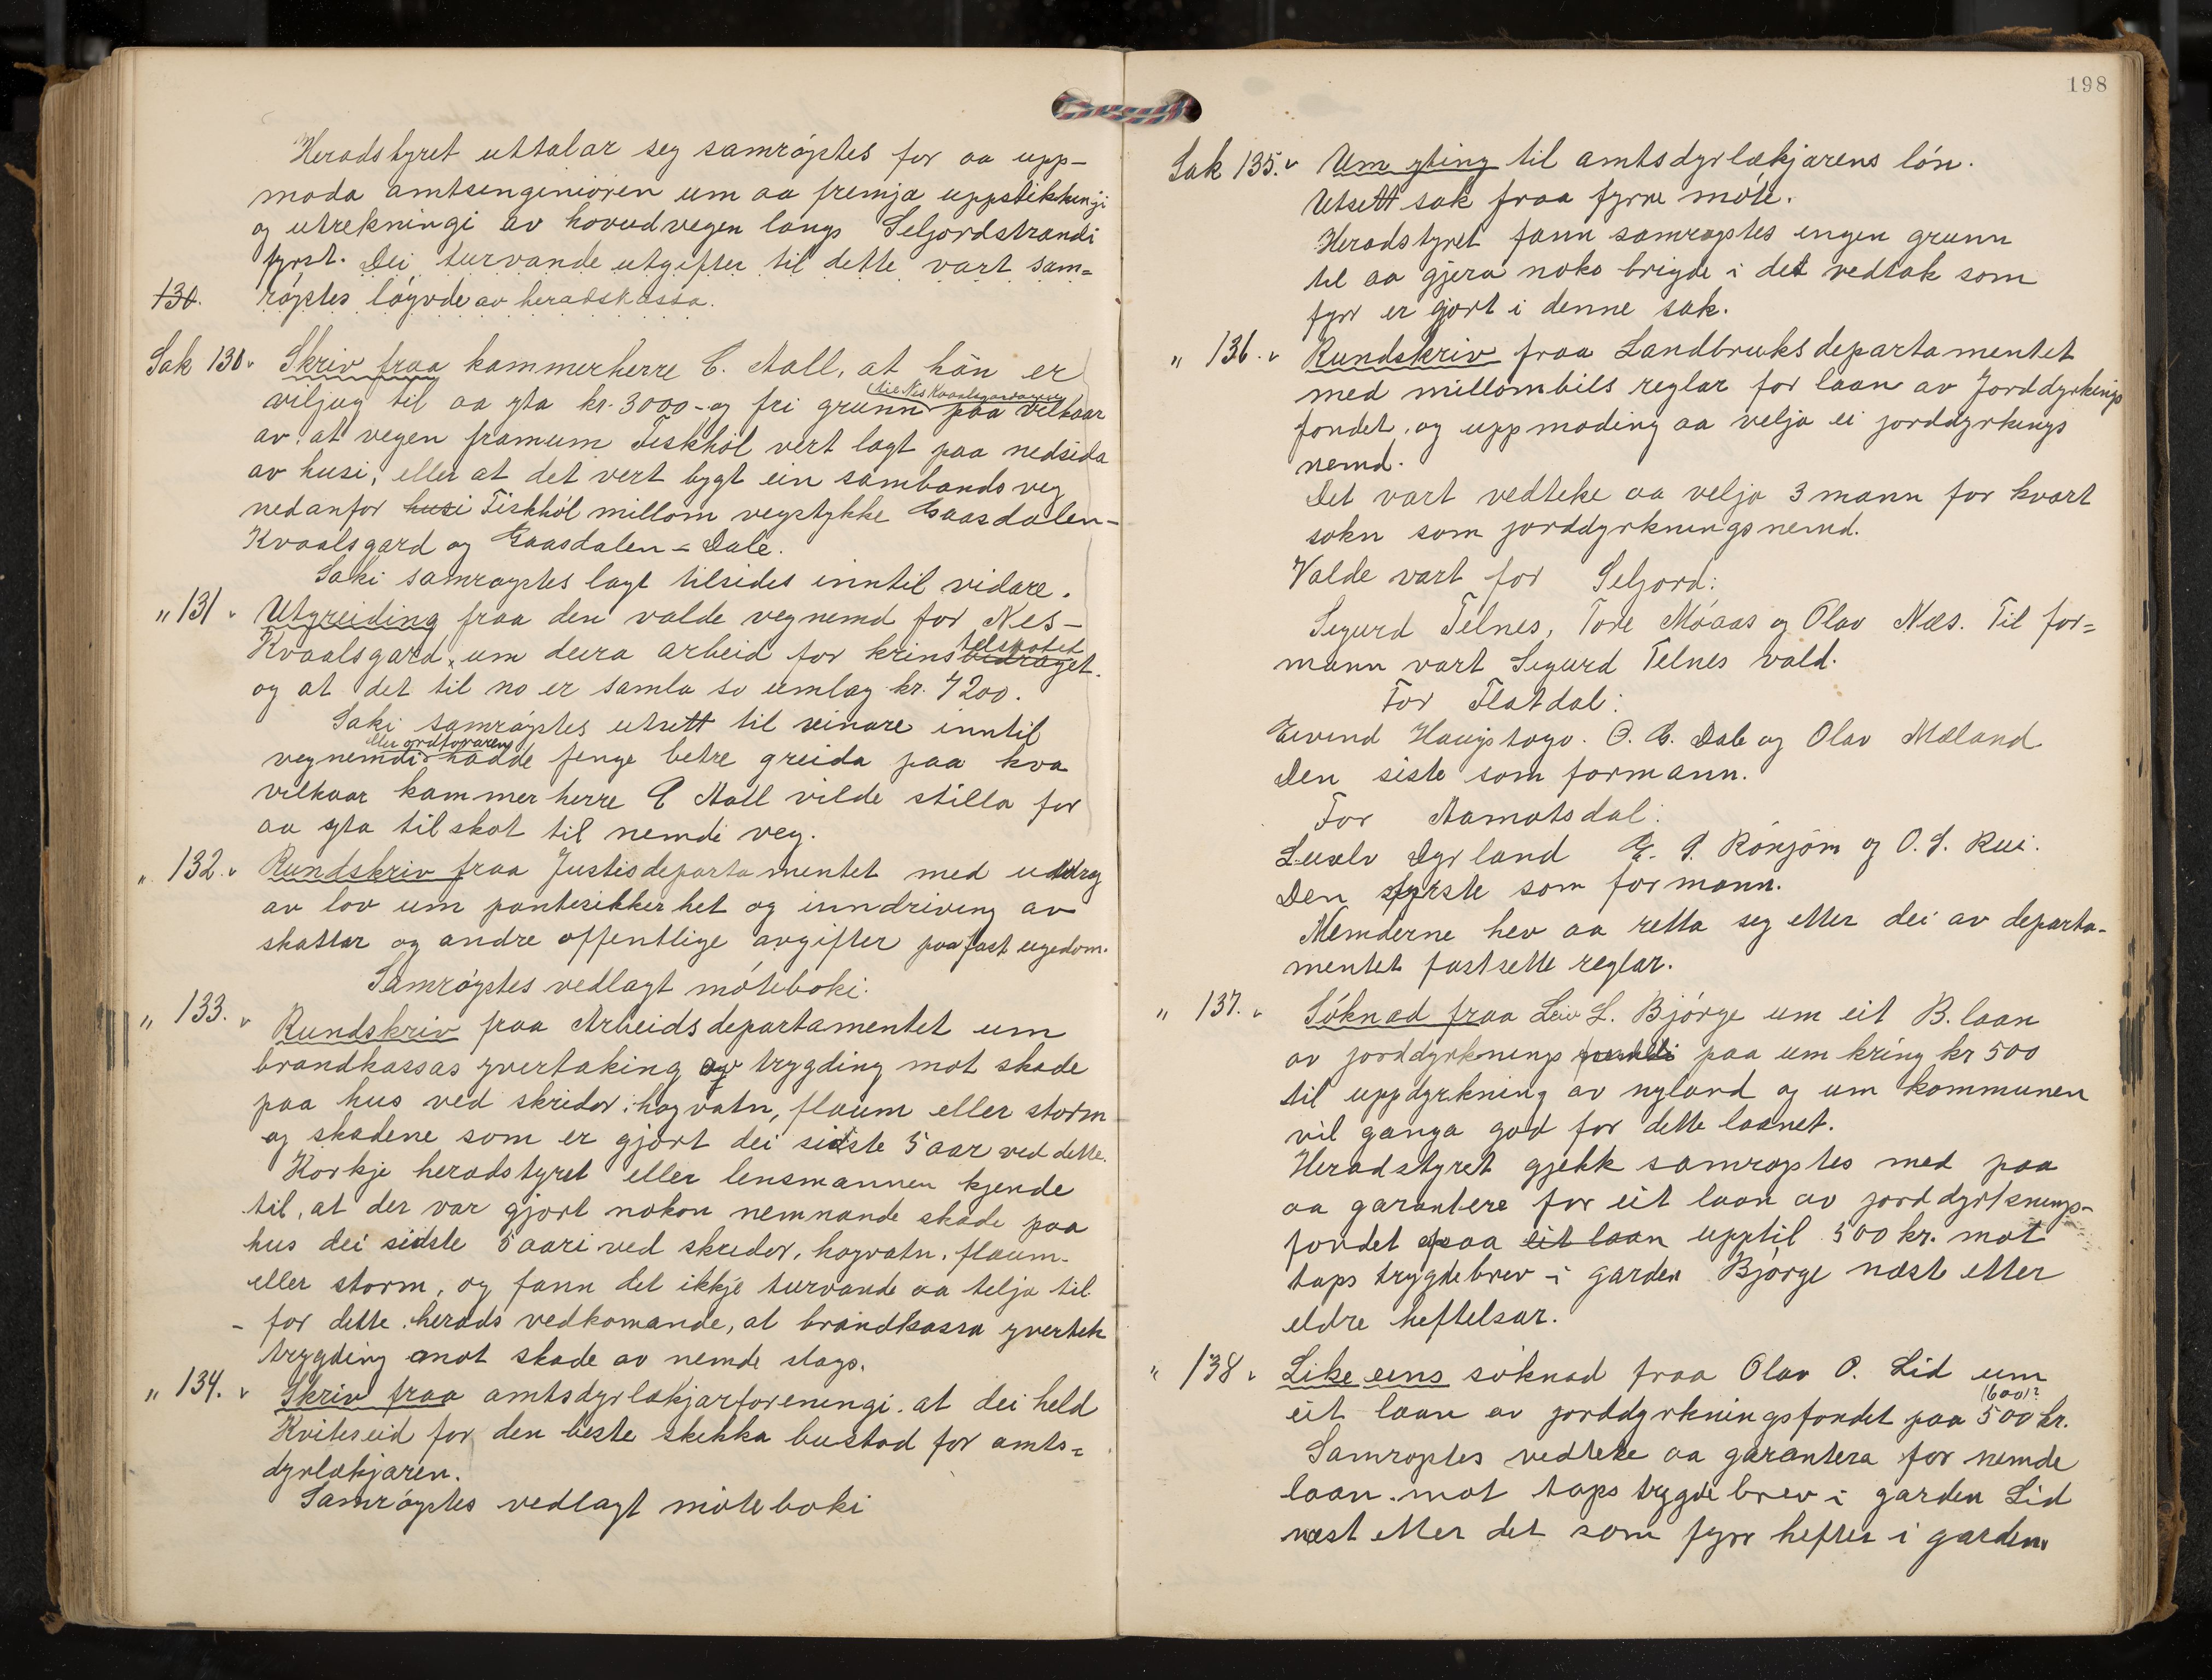 Heradstyret uttalar seg samrøystes for aa upp-
moda amtsingeniøren um aa fremja uppstikkningi
og utrekningi av hovudvegen langs Seljordstrandi
fyrst. Dei turvande utgifter til dette vart sam=
130. røystes løyvde av heradskassa.
Sak 130. Skriv fraa kammerherre C. Aall, at han er
til Nes Kvaalsgardvegen
viljug til aa yta kr. 3000- og fri grunn paa vilkaar
av: at vegen framum Fiskhól vert lagt paa nedsida
av husi, eller at det vert bygt ein sambands veg
nedanfor husi Fiskhól millom vegstykke Gaasdalen-
Kvaalsgard og Gaasdalen = Dale.
Saki samrøystes lagt tilsides inntil vidare.
" 131. Utgreiding fraa den valde vegnemd for Nes-
tilskotet
Kvaalsgard, um deira arbeid for krinsbidraget.
og at det til no er samla so umlag kr. 7200.
Saki samrøystes utsett til seinare inntil
eller ordføraren
vegnemdi hadde fenge betre greida paa kva
vilkaar kammerherre C Aall vilde stilla for
aa yta tilskot til nemde veg.
" 132. Rundskriv fraa Justisdepartamentet med utdrag
av lov um pantesikkerhet og inndriving av
skattar og andre offentlige avgifter paa fast eigedom.
Samrøystes vedlagt møteboki.
" 133. Rundskriv fraa Arbeidsdepartamentet um
brandkassas yvertaking av trygding mot skade
paa hus ved skridor, hogvatn, flaum eller storm
og skadene som er gjort dei sidste 5 aar ved dette.
Korkje heradstyret eller lensmannen kjende
til, at der var gjort nokon nemnande skade paa
hus dei sidste 5 aari ved skridor, hogvatn, flaum-
eller storm, og fann det ikkje turvande aa telja til
- for dette herads vedkomande, at brandkassa yvertek
trygding mot skade av nemde slags.
" 134. Skriv fraa amtsdyrlækjarforeningi. at dei held
Kviteseid for den beste skikka bustad for amts=
dyrlækjaren.
Samrøystes vedlagt møteboki
198
Sak 135. Um yting til amtsdyrlækjarens løn.
Utsett sak fraa fyrre møte.
Heradstyret fann samrøystes engen grunn
til aa gjera noko brigde i det vedtak som
fyrr er gjort i denne sak.
" 136. Rundskriv fraa Landbruksdepartamentet
med millombils reglar for laan av Jorddyrkings
fondet, og uppmoding aa velja ei jorddyrkings
nemd.
Det vart vedteke aa velja 3 mann for kvart
sokn som jorddyrkningsnemd.
Valde vart for Seljord:
Sigurd Telnes, Tore Móaas og Olav Næs. Til for=
mann vart Sigurd Telnes vald.
For Flatdal:
Eivind Haugstogo. O. G. Dale og Olav Mæland
Den siste som formann.
For Aamotsdal:
Luulv Dyrland G. G. Rónjóm og O. S. Rui.
Den fyrste som formann.
Nemderne hev aa retta seg etter dei av departa-
mentet fastsette reglar.
" 137. Søknad fraa Leiv L. Bjørge um eit B. laan
av jorddyrknings paa um kring kr 500
til uppdyrkning av nyland og um kommunen
vil ganga god for dette laanet.
Heradstyret gjekk samrøystes med paa
aa garantere for eit laan av jorddyrknings-
fondet paa eit laan upptil 500 kr. mot
taps trygdebrev i garden Bjørge næst etter
eldre heftelsar.
" 138. Like eins søknad fraa Olav O. Lid um
(600)?
eit laan av jorddyrkningsfondet paa 500 kr.
Samrøystes vedteke aa garantera for nemde
laan mot taps trygdebrev i garden Lid
næst etter det som fyrr hefter i garden.